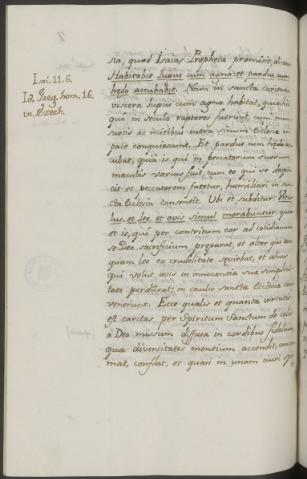 Isai. 11. 6.
Id. Greg. hom. 16.
in Ezech.
sia, quod Isaias Propheta promisit, dicens:
Habitabit lupus cum agno: et pardus cum
hedo accubabit. Nam in sanctæ caritatis
viscera lupus cum agno habitat, quia hi
qui in seculo raptores fuerunt, cum man-
suetis ac mitibus intra sinum Ecclesiæ in
pace conquiescunt. Et pardus cum hedo ac-
cubat, quia is, qui in peccatorum suorum
maculis varius fuit, cum eo qui se despi-
cit et peccatorem fatetur, humiliari in san-
cta Ecclesia consentit. Ubi et subditur: Vitu-
lus, et leo, et ovis simul morabuntur: quia
et is, qui per contritum cor ad cotidianum
se Deo sacrificium præparat, et alter qui tam-
quam leo ex crudelitate sæviebat, et alius
qui velut ovis in innocentiæ suæ simplici-
tate perdurat, in caulis sanctæ Ecclesiæ con-
venerunt. Ecce qualis et quanta virtutis
est caritas, per Spiritum Sanctum de cælo
a Deo missum diffusa in cordibus fidelium
quæ diversitates mentium accendit, concre-
mat, conflat, et quasi in unam auri spe-